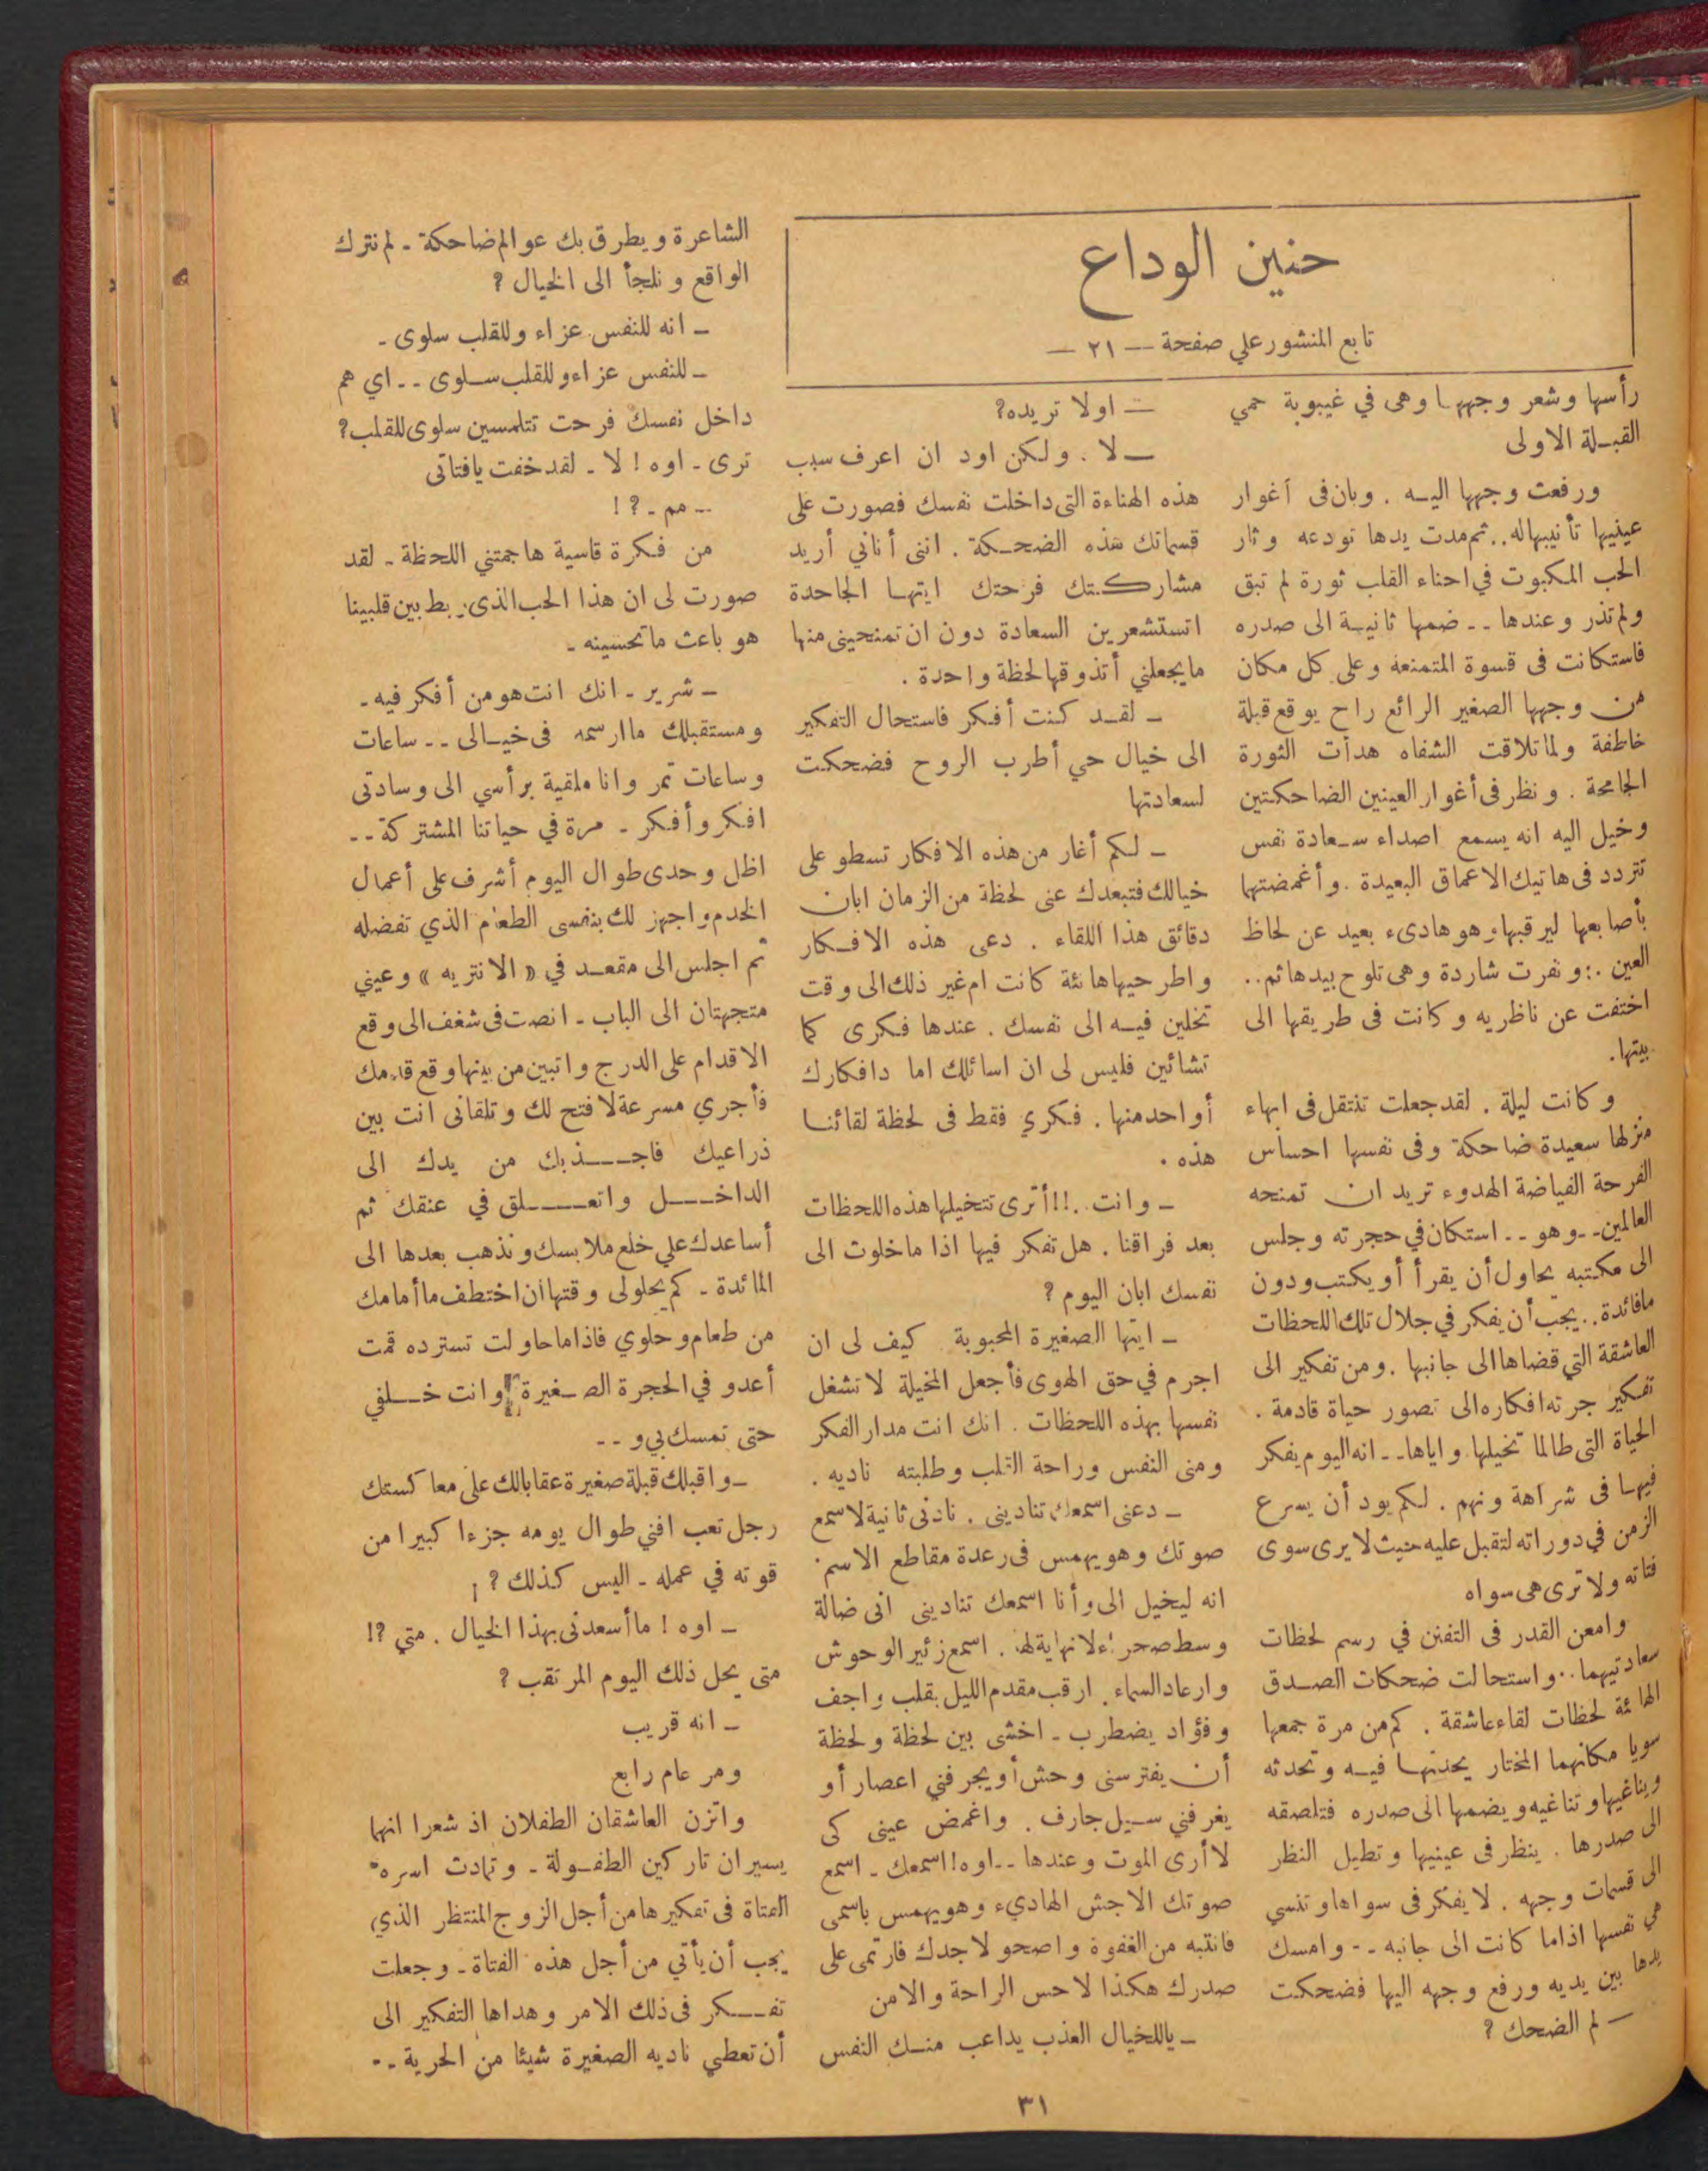 حنين الوداع
تابع المنشور علي صفحة — ٢١ —
رأسها وشعر وجهها وهى في غيبوبة حمي
القبلة الاولى
ورفعت وجهها اليه . وبان فى أغوار
عينيها تأنيبها له .. ثم مدت يدها تودعه وثار
الحب المكبوت في احناء القلب ثورة لم تبق
ولم تذر وعندها -- ضمها ثانية الى صدره
فاستكانت فى قسوة المتمنعة وعلى كل مكان
من وجهها الصغير الرائع راح يوقع قبلة
خاطفة ولما تلاقت الشفاه هدأت الثورة
الجامحة . ونظر فى أغوار العينين الضاحكتين
وخيل اليه انه يسمع اصداء سعادة نفس
تتردد فى هاتيك الاعماق البعيدة . وأغمضتها
بأصابعها ليرقبها وهو هادىء بعيد عن لحاظ
العين .: ونفرت شاردة وهى تلوح بيدها ثم ..
اختفت عن ناظريه وكانت فى طريقها الى
بيتها .
وكانت ليلة . لقد جعلت تنتقل فى ابهاء
منزلها سعيدة ضاحكة وفى نفسها احساس
الفرحة الفياضة الهدوء تريد ان تمنحه
العالمين -- وهو -- استكان في حجرته وجلس
الى مكتبه يحاول أن يقرأ أو يكتب ودون
ما فائدة .. يجب أن يفكر في جلال تلك اللحظات
العاشقة التي قضاها الى جانبها . ومن تفكير الى
تفكير جرته افكاره الى تصور حياة قادمة .
الحياة التى طالما تخيلها واياها -- انه اليوم يفكر
فيها فى شراهة ونهم . لكم يود أن يسرع
الزمن في دوراته لتقبل عليه حيث لا يرى سوى
فتاته ولا ترى هى سواه
وامعن القدر فى التفنن في رسم لحظات
سعادتيهما .. واستحالت ضحكات الصدق
الهائة لحظات لقاء عاشقة . كم من مرة جمعها
سويا مكانهما المختار يحدثها فيه وتحدثه
ويناغيها وتناغيه ويضمها الى صدره فتلصقه
الى صدرها . ينظر فى عينيها وتطيل النظر
الى قسمات وجهه . لا يفكر فى سواها وتنسي
هي نفسها اذا ما كانت الى جانبه -- وامسك
يدها بين يديه ورفع وجهه اليها فضحكت
— لم الضحك ?
— اولا تريده?
— لا . ولكن اود ان اعرف سبب
هذه الهناءة التى داخلت نفسك فصورت على
قسماتك هذه الضحكة . اننى أناني أريد
مشاركتك فرحتك ايتها الجاحدة
اتستشعرين السعادة دون ان تمنحينى منها
ما يجعلني أتذوقها لحظة واحدة .
- لقد كنت أفكر فاستحال التفكير
الى خيال حي أطرب الروح فضحكت
لسعادتها
- لكم أغار من هذه الافكار تسطو على
خيالك فتبعدك عنى لحظة من الزمان ابان
دقائق هذا اللقاء . دعى هذه الافكار
واطرحيها هائئة كانت ام غير ذلك الى وقت
تخلين فيه الى نفسك . عندها فكرى كما
تشائين فليس لى ان اسائلك اما دافكارك
أو احد منها . فكري فقط فى لحظة لقائنا
هذه .
- وانت .!! أترى تتخيلها هذه اللحظات
بعد فراقنا . هل تفكر فيها اذا ما خلوت الى
نفسك ابان اليوم ?
- ايتها الصغيرة المحبوبة كيف لى ان
اجرم في حق الهوى فأجعل المخيلة لا تشغل
نفسها بهذه اللحظات . انك انت مدار الفكر
ومنى النفس وراحة القلب وطلبته ناديه .
- دعنى اسمعك تنادينى . نادنى ثانية لاسمع
صوتك وهو يهمس فى رعدة مقاطع الاسم
انه ليخيل الى وأنا اسمعك تنادينى انى ضالة
وسط صحراء لا نهاية لها . اسمع زئير الوحوش
وارعاد السماء . ارقب مقدم الليل بقلب واجف
وفؤاد يضطرب - اخشى بين لحظة ولحظة
أن يفترسنى وحش أو يجرفني اعصار أو
يغرفني سيل جارف . واغمض عينى كى
لا أرى الموت وعندها -- اوه ! اسمعك - اسمع
صوتك الاجش الهاديء وهو يهمس باسمى
فانتبه من الغفوة واصحو لاجدك فارتمى على
صدرك هكذا لاحس الراحة والامن
- ياللخيال العذب يداعب منك النفس
الشاعرة ويطرق بك عوالم ضاحكة - لم نترك
الواقع ونلجأ الى الخيال ?
- انه للنفس عزاء وللقلب سلوى -
- للنفس عزاء وللقلب سلوى -- اي هم
داخل نفسك فرحت تتلمسين سلوى للقلب?
ترى - اوه ! لا - لقد خفت يا فتاتى
-- مم - ? !
من فكرة قاسية هاجمتني اللحظة - لقد
صورت لى ان هذا الحب الذى ربط بين قلبينا
هو باعث ما تحسينه -
- شرير - انك انت هو من أفكر فيه -
ومستقبلك ما ارسمه فى خيالى -- ساعات
وساعات تمر وانا ملقية برأسي الى وسادتى
افكر وأفكر - مرة في حياتنا المشتركة --
اظل وحدى طوال اليوم أشرف على أعمال
الخدم واجهز لك بنفسى الطعام الذي تفضله
ثم اجلس الى مقعد في « الانتريه » وعيني
متجهتان الى الباب - انصت فى شغف الى وقع
الاقدام على الدرج واتبين من بينها وقع قدمك
فأجري مسرعة لافتح لك وتلقانى انت بين
ذراعيك فاجذبك من يدك الى
الداخل واتعلق في عنقك ثم
أساعدك علي خلع ملابسك ونذهب بعدها الى
المائدة - كم يحلولى وقتها أن اختطف ما أمامك
من طعام وحلوي فاذا ما حاولت تسترده قمت
أعدو في الحجرة الصغيرة وانت خلفي
حتى تمسك بي و --
- واقبلك قبلة صغيرة عقابالك على معاكستك
رجل تعب افني طوال يومه جزءا كبيرا من
قوته في عمله - اليس كذلك ? !
- اوه ! ما أسعدنى بهذا الخيال . متي ?!
متى يحل ذلك اليوم المرتقب ?
- انه قريب
ومر عام رابع
واتزن العاشقان الطفلان اذ شعرا انهما
يسيران تاركين الطفولة - وتمادت اسره
الفتاة فى تفكيرها من أجل الزوج المنتظر الذي
يجب أن يأتي من أجل هذه الفتاة - وجعلت
تفكر فى ذلك الامر وهداها التفكير الى
أن تعطي ناديه الصغيرة شيئا من الحرية --
٣١